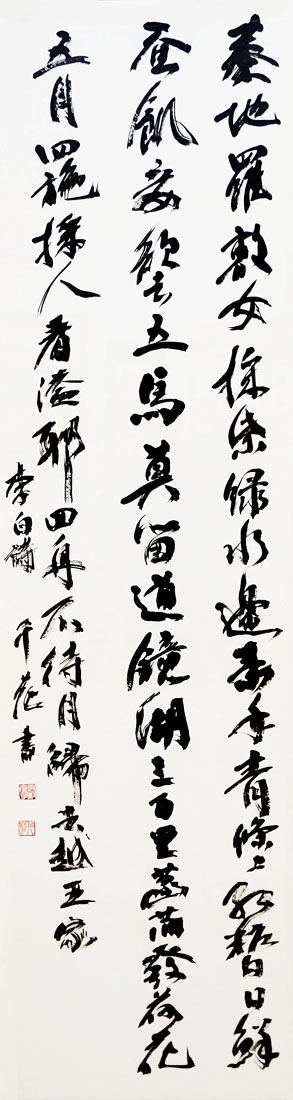 秦地羅敷女採桑綠水邊素手青條上紅粧白日鮮
蚕飢妾欲去五馬莫留連鏡湖三百里菡萏發荷花
五月西施採人看隘耶回舟不待月歸去越王家
李白詩 書